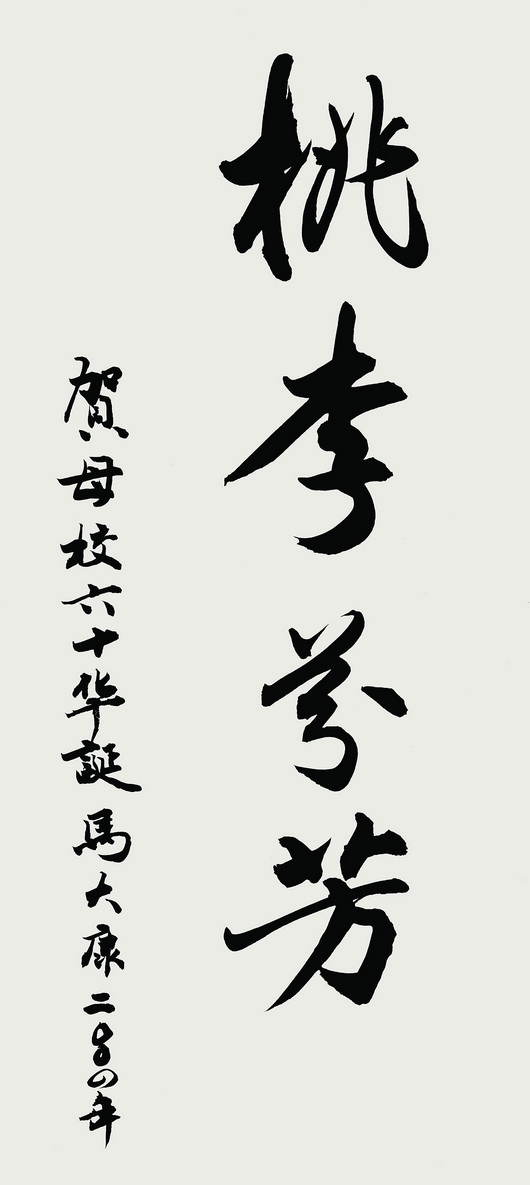 桃李芬芳
賀母校六十华誕 馬大康 二〇〇四年